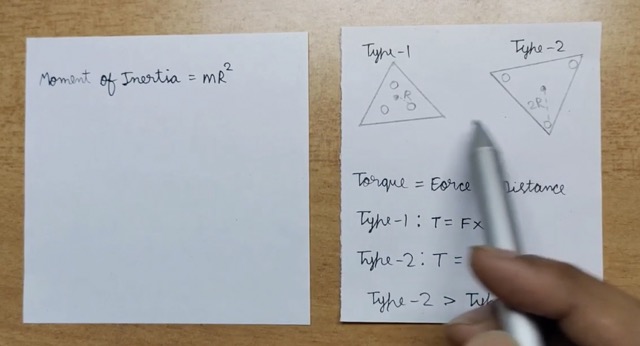 Moment of Inertia = mR²
Type-1
Type-2
R
2R
Torque = Force
Type-1 : T = Fx
Type-2 : T =
Type-2 >